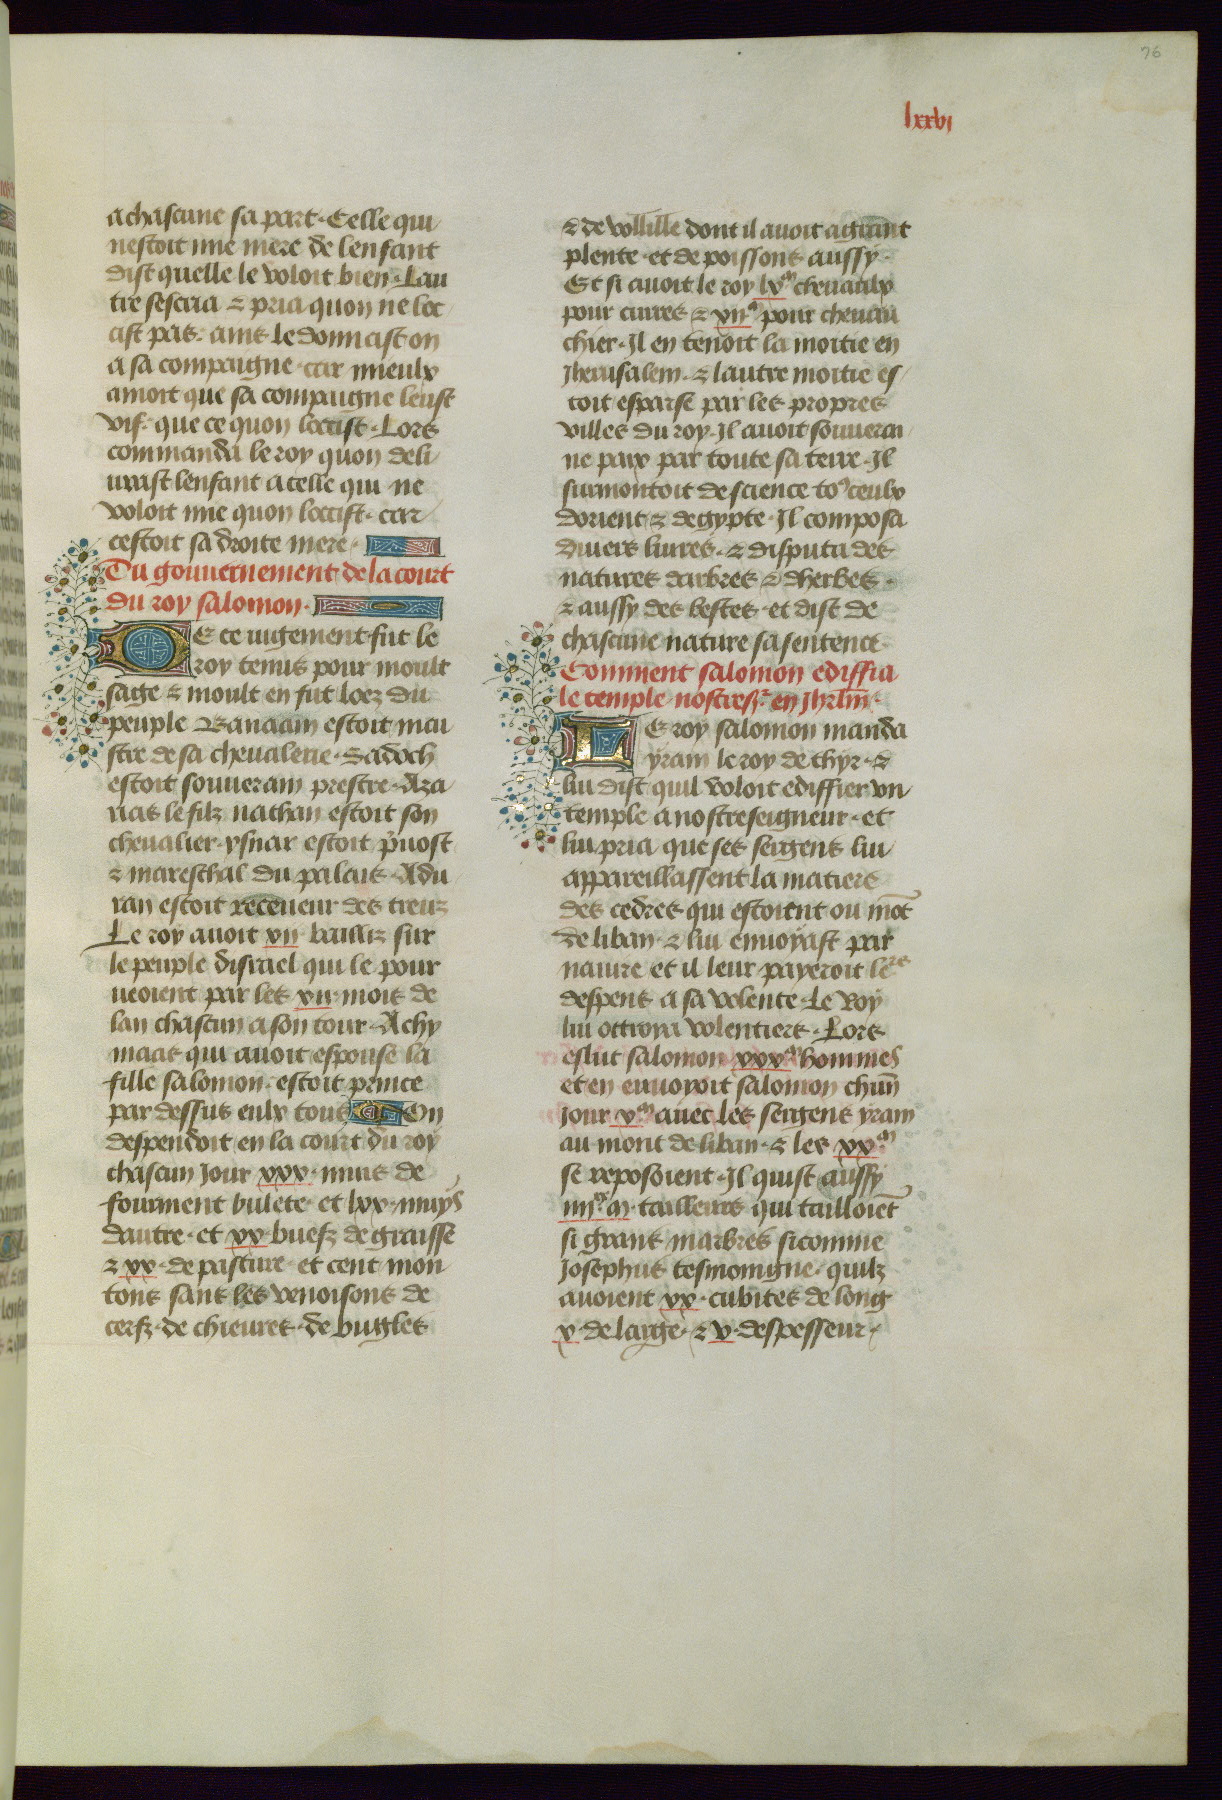 76
lxxvi
a chascune sa part. Celle qui
nestoit mie mere de lenfant
dist quelle le voloit bien. Lau
tre sescria & pria quon ne loc
cist pas. ains le donnast on
a sa compaigne. car mieulx
amoit que sa compaigne leust
vif. que ce quon loccist. Lors
commanda le roy quon deli
urast lenfant a celle qui ne
voloit mie quon loccist. car
cestoit sa droite mere.
Du gouuernement de la court
du roy salomon.
De ce iugement fut le
roy tenus pour moult
sage & moult en fut loez du
peuple Banaam estoit mai
stre de sa cheualerie. Sadoch
estoit souuerain prestre. Aza
rias le filz nathan estoit son
cheualier. ysnar estoit p̃uost
& mareschal du palais. Adu
ran estoit receueur des treuz
Le roy auoit xii. bailliz sur
le peuple disrael qui le pour
ueoient par les xii. mois de
lan chascun a son tour. Achy
maas qui auoit espouse la
fille salomon. estoit prince
par dessus eulx tous On
despendoit en la court du roy
chascun Jour xxx. muis de
fourment bulete. et lxx. muys
dautre. et xx. buefz de graisse
& xx. de pasture. et cent mou
tons sans les venoisons de
cerfz. de chieures. de bugles
& de vollille dont il auoit a grant
plente. et de poissons aussy.
Et si auoit le roy lx.m cheuaulx
pour curres & xii.m pour cheuau
chier. Il en tenoit la moitie en
Jherusalem. & lautre moitie es
toit esparse par les propres
villes du roy. Il auoit souuerai
ne paix par toute sa terre. Il
surmontoit de science to9 ceulx
dorient & degypte. Il composa
diuers liures. & disputa des
natures darbres & dherbes.
& aussy des bestes. et dist de
chascune nature sa sentence.
Comment salomon ediffia
le temple nostres.r en Jhrl̃m.
Le roy salomon manda
yram le roy de thyr. &
lui dist quil voloit ediffier vn
temple a nostreseigneur. et
lui pria que ses sergens lui
appareillassent la matiere
des cedres qui estoient ou mõt
de liban. & lui enuoyast par
nauire et il leur payeroit le.rs
despens a sa volente. Le Roy
lui ottroya volentiers. Lors
eslut salomon xxx.m hommes
et en enuoyoit salomon chũn
Jour x.m auec les sergens yram
au mont de liban. & les xx.m
se reposoient. Il quist aussy
iiii.xx m. tailleurs qui tailloiẽt
si grans marbres sicomme
Josephus tesmoingne. quilz
auoient xx. cubites de long
x. de large. & v. despesseur.